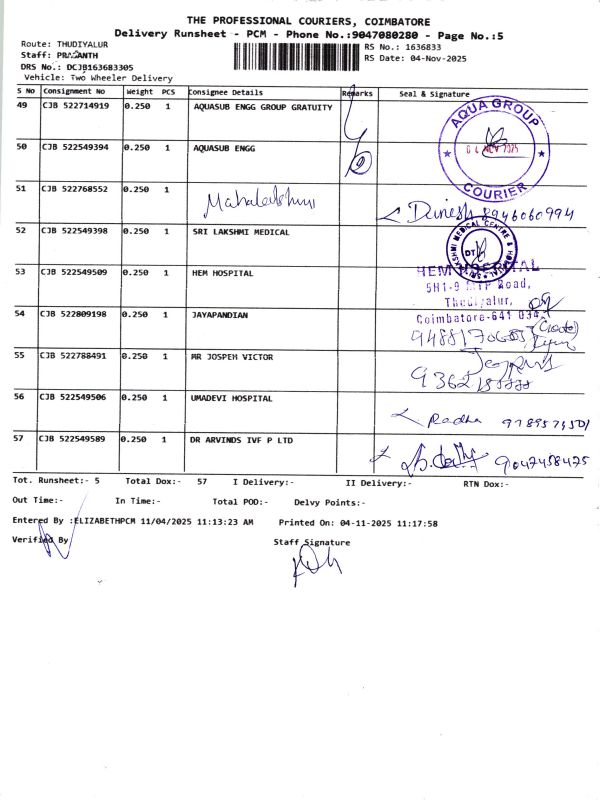 THE PROFESSIONAL COURIERS, COIMBATORE
Delivery Runsheet - PCM - Phone No.:9047080280 - Page No.:5
Route: THUDIYALUR
RS No.: 1636833
Staff: PRASANTH
RS Date: 04-Nov-2025
DRS No.: DCJB163683305
Vehicle: Two Wheeler Delivery
S No Consignment No Weight PCS Consignee Details Remarks Seal & Signature
49 CJB 522714919 0.250 1 AQUASUB ENGG GROUP GRATUITY
AQUA GROUP
04 NOV 2025
COURIER
50 CJB 522549394 0.250 1 AQUASUB ENGG
51 CJB 522768552 0.250 1 Mahalakshmi
Dinesh 8946060994
52 CJB 522549398 0.250 1 SRI LAKSHMI MEDICAL
SRI LAKSHMI MEDICAL CENTRE & HOSPITAL
53 CJB 522549509 0.250 1 HEM HOSPITAL
HEM HOSPITAL
5H1-9 MTP Road,
Thudiyalur,
Coimbatore-641 034
54 CJB 522809198 0.250 1 JAYAPANDIAN
55 CJB 522788491 0.250 1 MR JOSPEH VICTOR
56 CJB 522549506 0.250 1 UMADEVI HOSPITAL
Radha
57 CJB 522549589 0.250 1 DR ARVINDS IVF P LTD
9047458475
Tot. Runsheet:- 5 Total Dox:- 57 I Delivery:- II Delivery:- RTN Dox:-
Out Time:- In Time:- Total POD:- Delvy Points:-
Entered By :ELIZABETHPCM 11/04/2025 11:13:23 AM Printed On: 04-11-2025 11:17:58
Verified By
Staff Signature